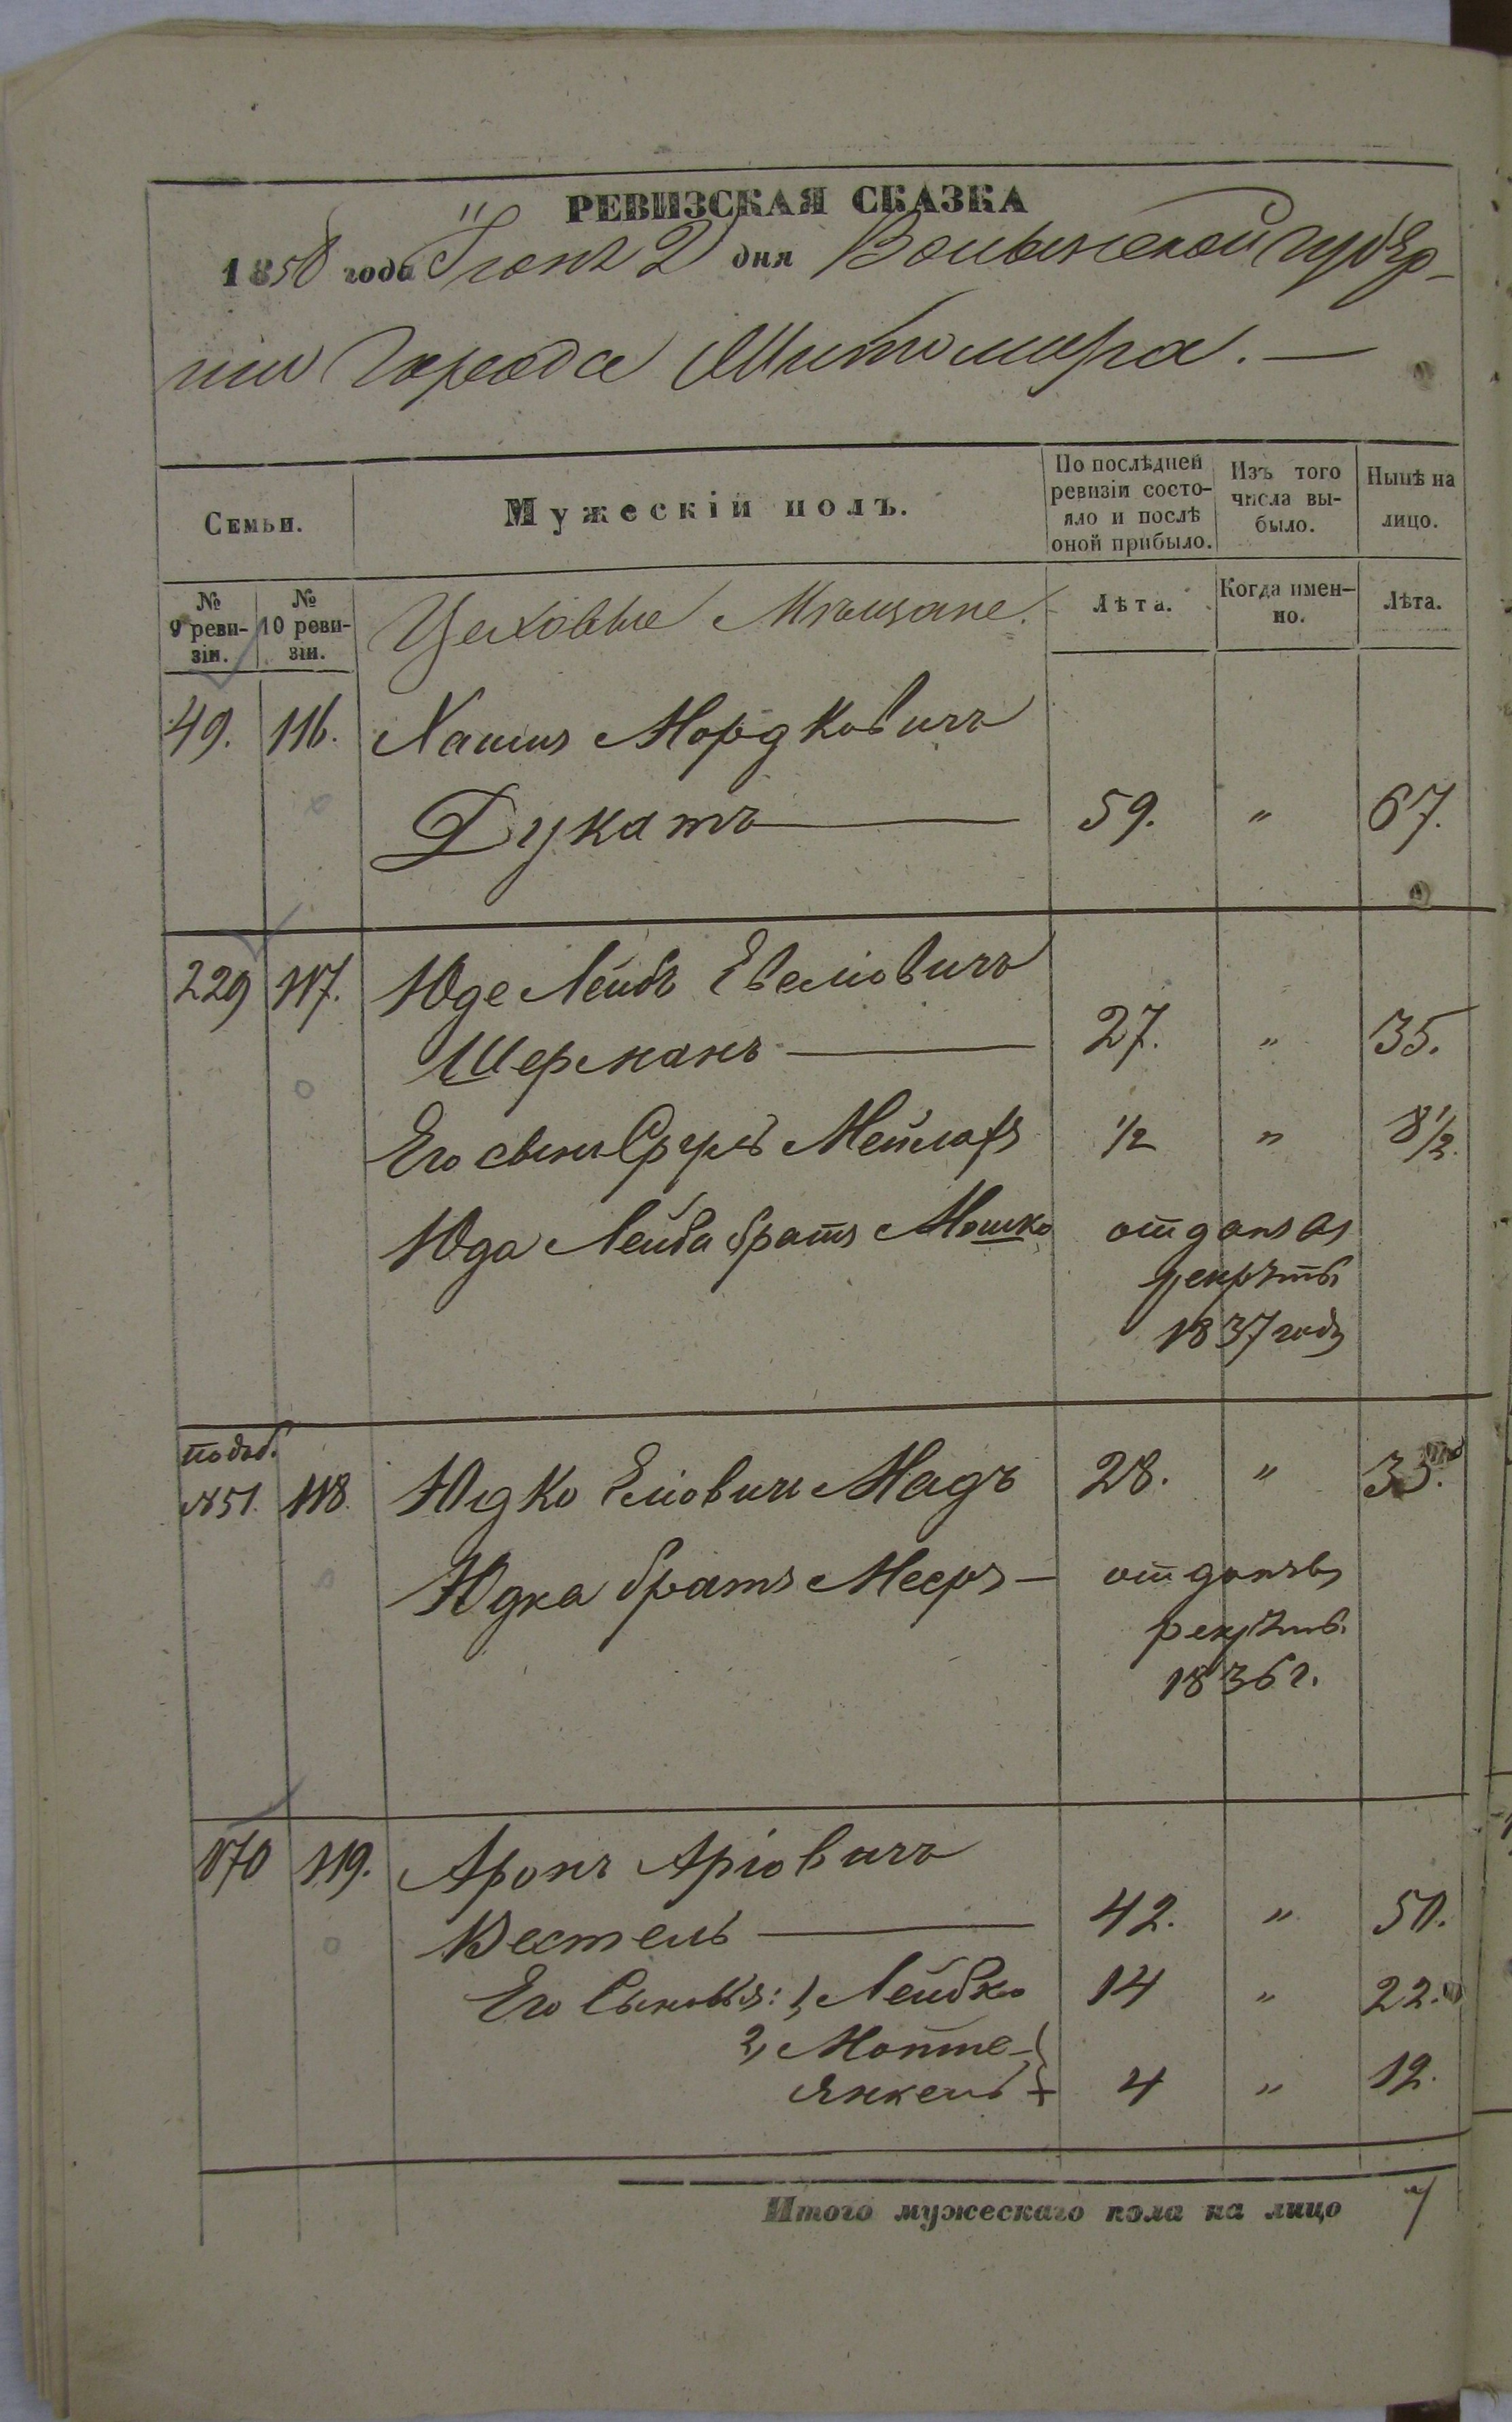 РЕВИЗСКАЯ СКАЗКА
1858 года Іюня 2 дня Волынской Губер-
ніи Города Житомира. —
Семьи.
Мужескій полъ.
По послѣдней ревизіи состо-яло и послѣ оной прибыло.
Изъ того числа вы-было.
Нынѣ на лицо.
№ 9 реви-зіи.
№ 10 реви-зіи.
Цеховые Мѣщане.
Лѣта.
Когда имен-но.
Лѣта.
49. 116. Хаимъ Мордковичъ
Дукатъ 59. " 67.
229 117. Юде Лейбъ Евелiовичъ
Шерманъ 27. " 35.
Его сынъ Сруль Мейлахъ ½ " 8½.
Юда Лейба братъ Мошко отданъ въ
рекруты
1837 году
по доб.
№ 51. 118. Юдко Еліовичъ Мадъ 28. "
Юдка братъ Мееръ — отданъ въ
рекруты
1836 г.
170 119. Аронъ Аріовичъ
Вестель 42. " 50.
Его Сыновья: 1, Лейбко 14 " 22.
2, Мотте-
Янкель 4 " 12.
Итого мужескаго пола на лицо 7